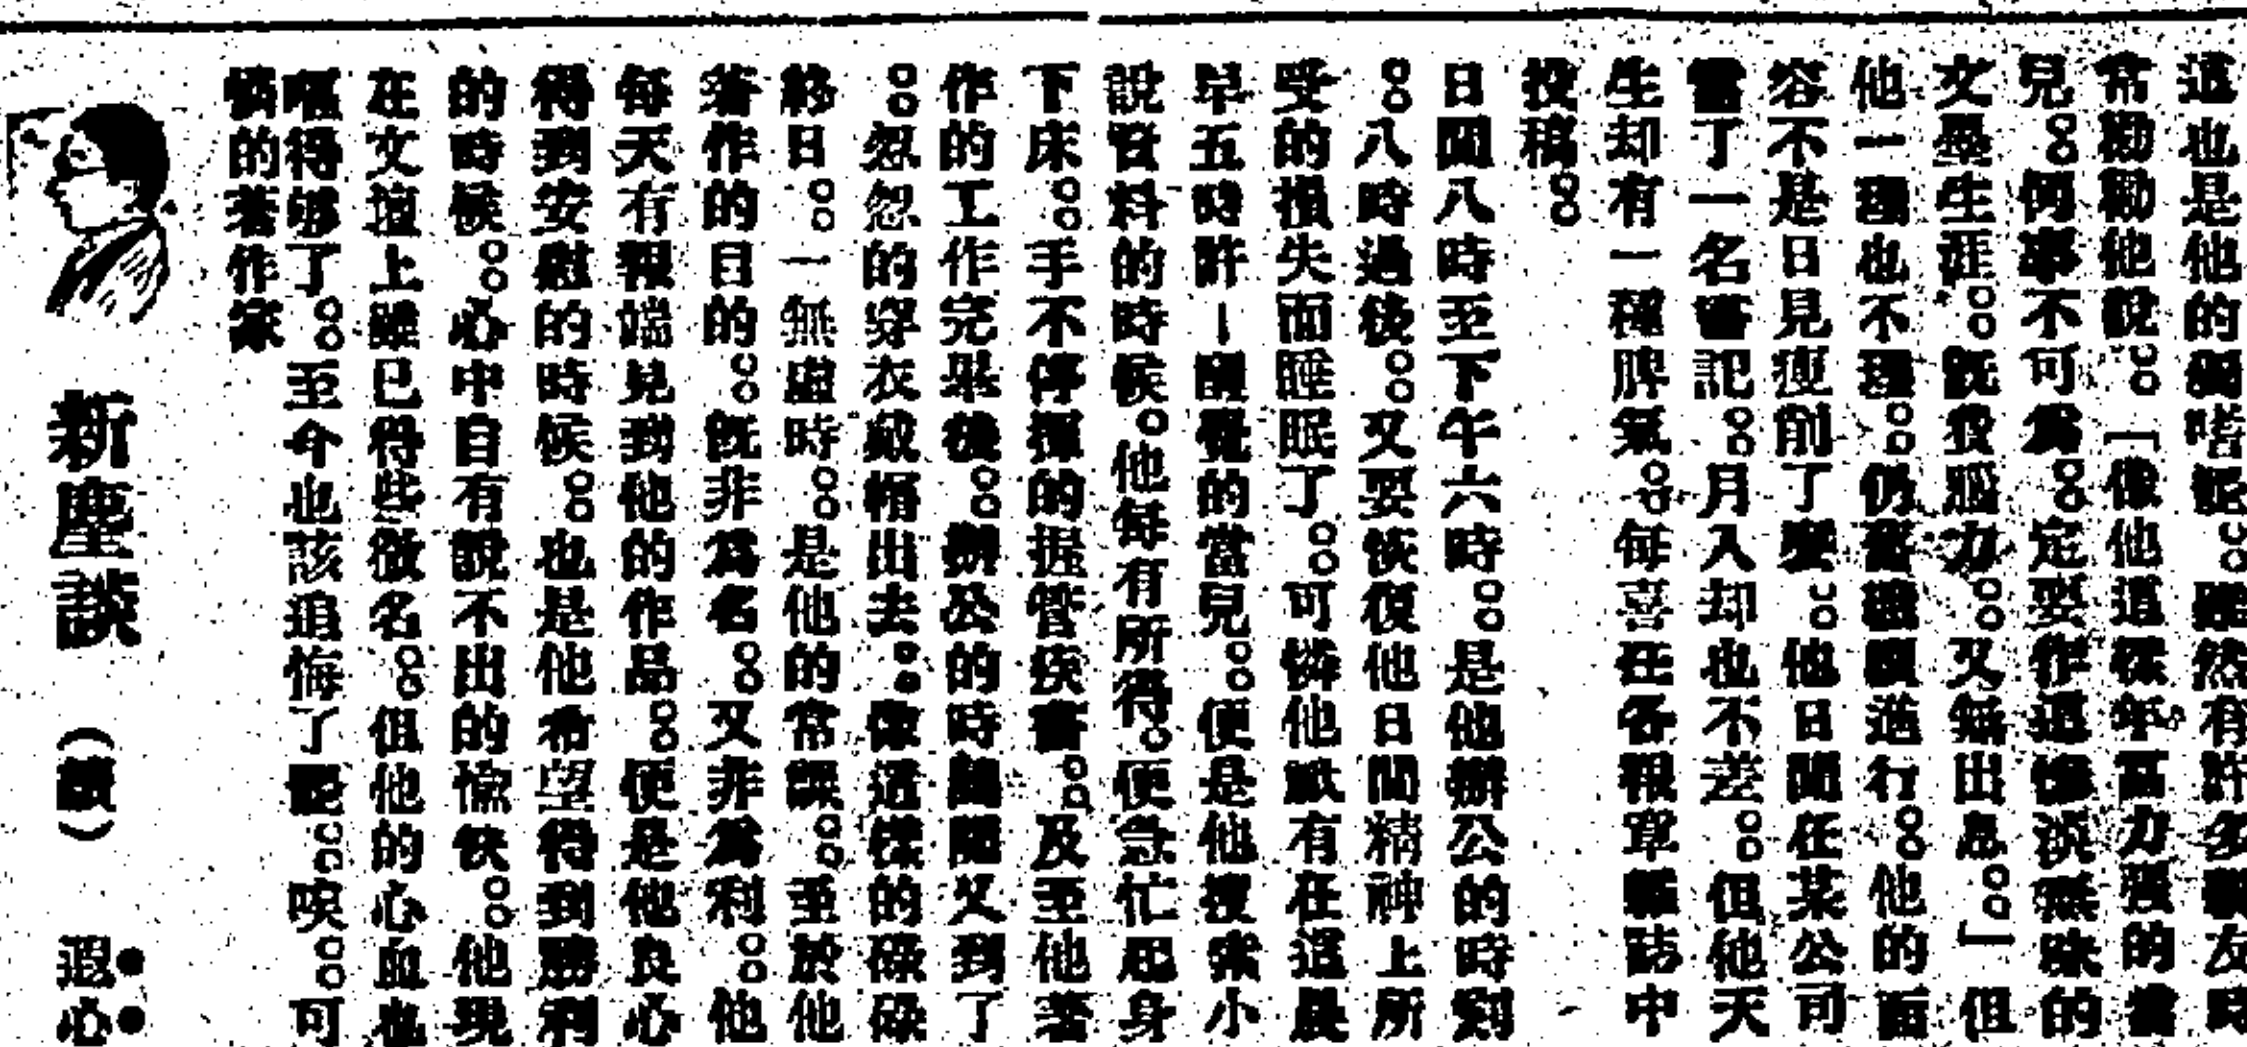 這也是他的癖嗜吧。。雖然有許多朋友時
常勸勸他說。。「像他這樣年富力强的當
兒。。何事不可為。。定要作這慘淡無味的
文墨生涯。。既費腦力。。又無出息。。」但
他一理也不理。。仍舊繼續進行。。他的面
容不是日見瘦削了麼。。他日間在某公司
當了一名書記。。月入却也不差。。但他天
生却有一種脾氣。。每喜在各報章雜誌中
投稿。。
日間八時至下午六時。。是他辦公的時刻
。。八時過後。。又要恢復他日間精神上所
受的損失而睡眠了。。可憐他祇有在這晨
早五時許—醒覺的當兒。。便是他搜索小
說資料的時候。他每有所得。便急忙起身
下床。。手不停揮的握管疾書。。及至他著
作的工作完畢後。。辦公的時間又到了
。。忽忽的穿衣戴帽出去。。像這樣的碌碌
終日。。一無虛時。。是他的常課。。至於他
著作的目的。。既非為名。。又非為利。。他
每天有報端見到他的作品。。便是他良心
得到安慰的時候。。也是他希望得到勝利
的時候。。心中自有說不出的愉快。。他現
在文壇上雖已得些微名。。但他的心血也
嘔得够了。。至今也該追悔了罷。。唉。。可
憐的著作家
新塵談 （續） 遐心